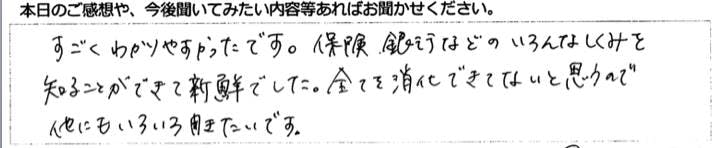 本日のご感想や、今後聞いてみたい内容等あればお聞かせください。
すごくわかりやすかったです。保険 銀行などのいろんなしくみを
知ることができて新鮮でした。全てを消化できてないと思うので
他にもいろいろ聞きたいです。